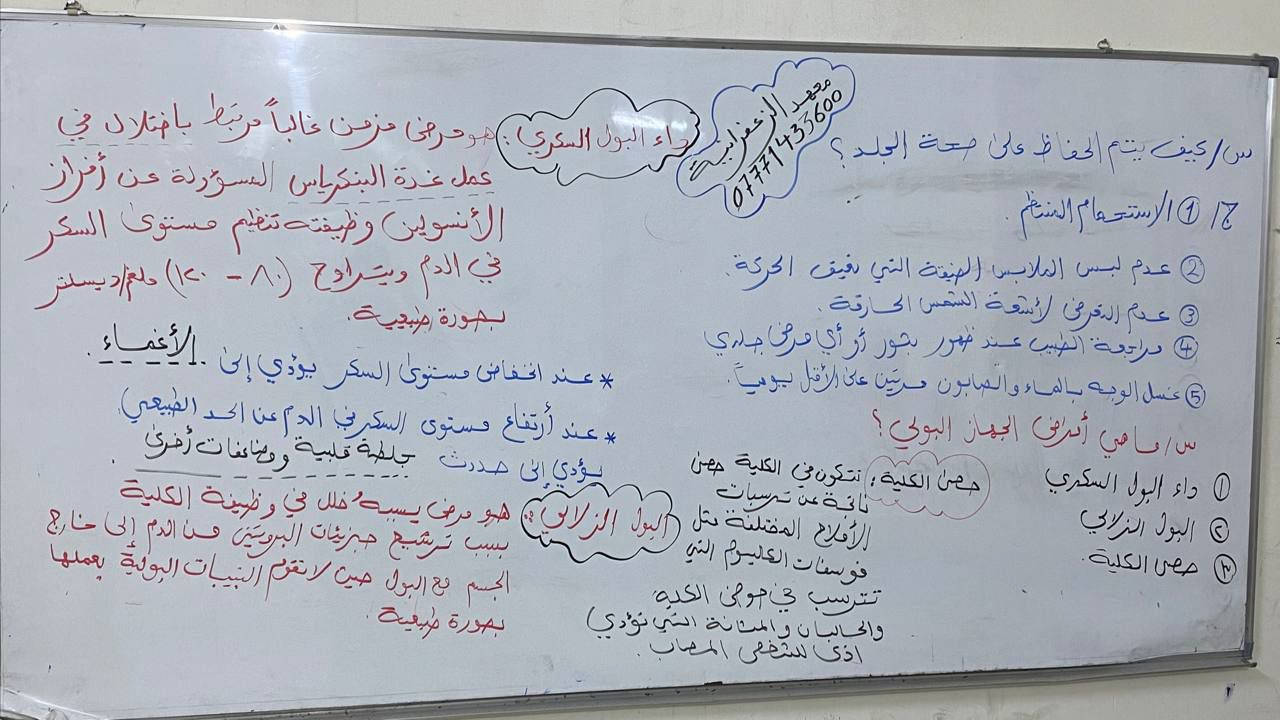 معهد الزعفرانية
07771433600
س/ كيف يتم الحفاظ على صحة الجلد؟
ج/ ① الاستحمام المنتظم.
② عدم لبس الملابس الضيقة التي تعيق الحركة.
③ عدم التعرض لأشعة الشمس الحارقة.
④ مراجعة الطبيب عند ظهور بثور أو أي مرض جلدي
⑤ غسل الوجه بالماء والصابون مرتين على الأقل يومياً.
س/ ما هي أمراض الجهاز البولي؟
① داء البول السكري
② البول الزلالي
③ حصى الكلية.
حصى الكلية: تتكون في الكلية حصى
ناتجة عن ترسبات
الأملاح المختلفة مثل
فوسفات الكالسيوم التي
تترسب في حوض الكلية
والحالبان والمثانة التي تؤدي
اذى للشخص المصاب.
داء البول السكري: هو مرض مزمن غالباً مرتبط باختلال في
عمل غدة البنكرياس المسؤولة عن أفراز
الأنسولين وظيفته تنظيم مستوى السكر
في الدم ويتراوح (٨٠ - ١٢٠) ملغم/ديسلتر
بصورة طبيعية.
* عند انخفاض مستوى السكر يؤدي إلى الأغماء.
* عند أرتفاع مستوى السكر في الدم عن الحد الطبيعي
يؤدي إلى حدوث جلطة قلبية ومضاعفات أخرى
البول الزلالي: هو مرض يسببه خلل في وظيفة الكلية
بسبب ترشيح جزيئات البروتين من الدم إلى خارج
الجسم مع البول حين لا تقوم النبيبات البولية بعملها
بصورة طبيعية.